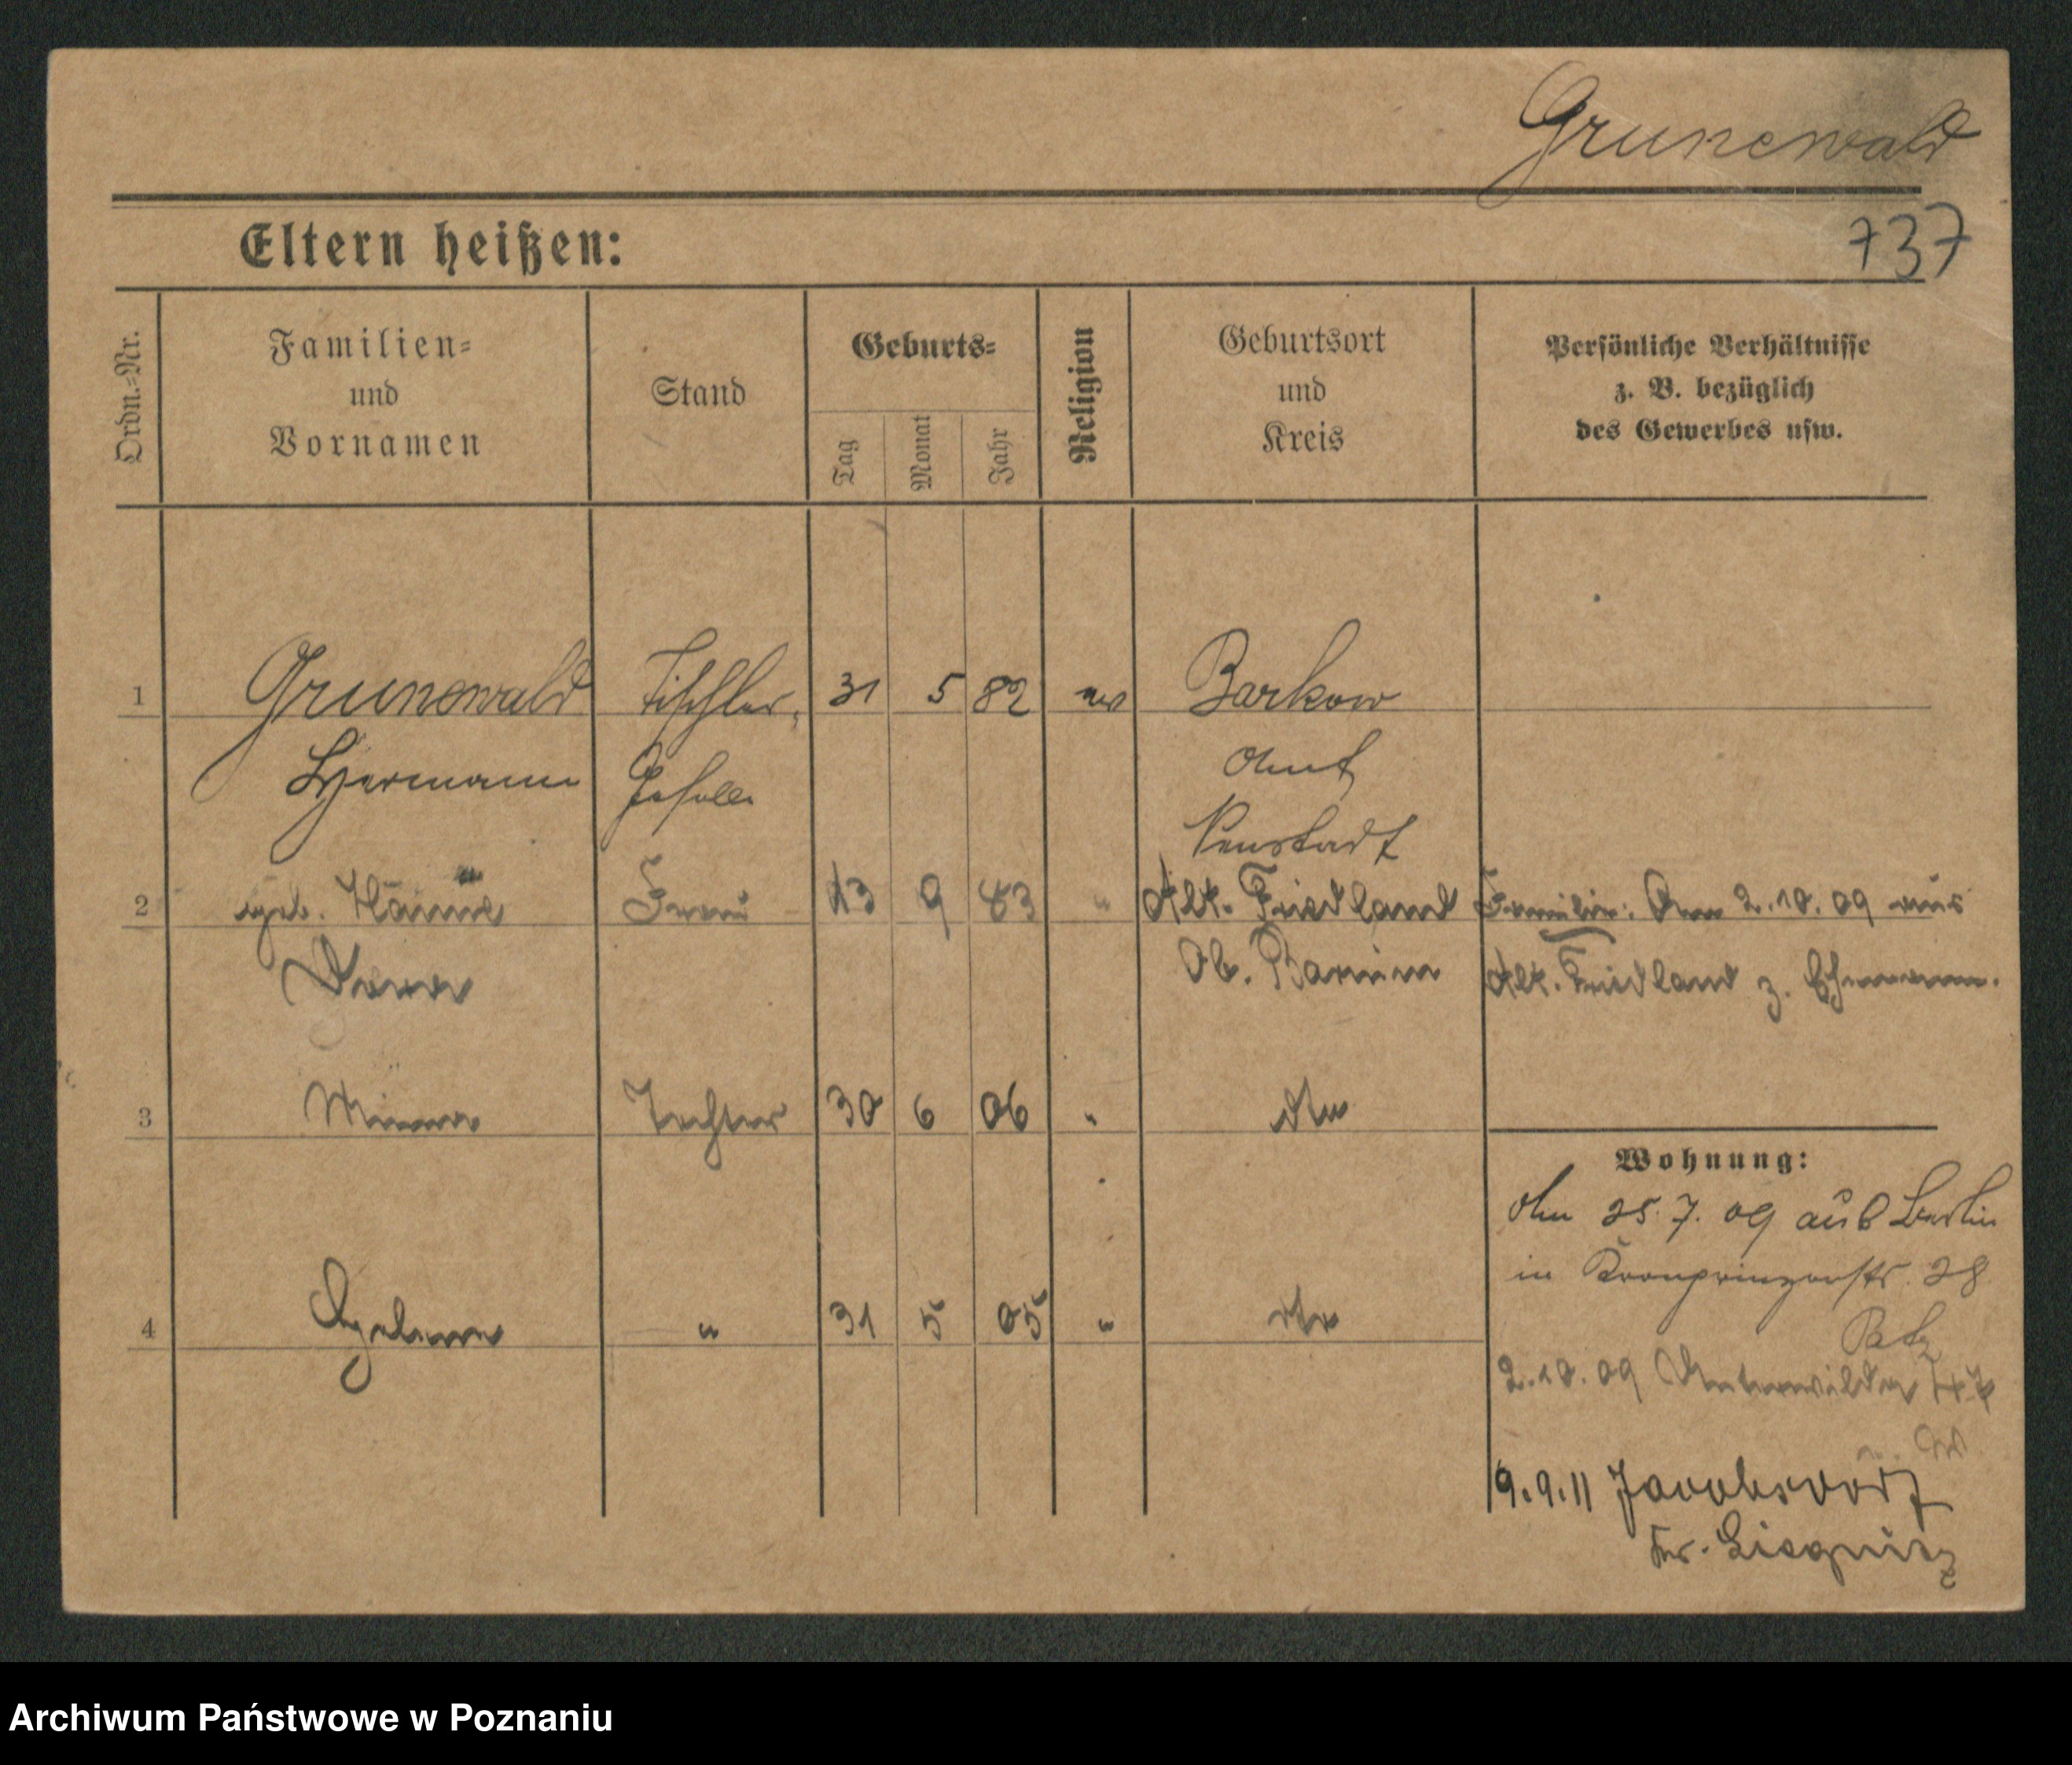 Grunewald
Eltern heißen:
737
Ordn.-Nr.
Familien-
und
Vornamen
Stand
Geburts-
Tag
Monat
Jahr
Religion
Geburtsort
und
Kreis
Persönliche Verhältnisse
z. B. bezüglich
des Gewerbes usw.
1 Grunewald Tischler- 31 5 82 ev Barkow
Hermann Geselle Amt
Neustadt
2 geb. Frau 9 83 " Alt. Friedland Familie: Am 2.10.09 aus
Ob. Barnim Alt. Friedland z. Ehemann.
3 Minna Tochter 30 6 06 " dto
Wohnung:
Am 25.7.09 aus Berlin
in Kronprinzenstr. 28
4 " 31 5 05 " dto
2.10.09 Unterwilda
9.9.11 Jacobsdorf
Kr. Liegnitz
Archiwum Państwowe w Poznaniu